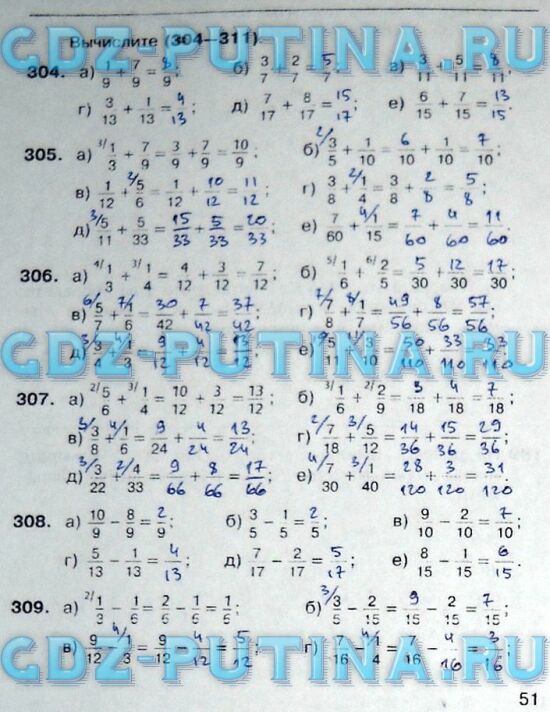 GDZ-PUTINA.RU
Вычислите (304–311).
304. а) 1/9 + 7/9 = 8/9; б) 3/7 + 2/7 = 5/7; в) 3/11 + 5/11 = 8/11;
г) 3/13 + 1/13 = 4/13; д) 7/17 + 8/17 = 15/17; е) 6/15 + 7/15 = 13/15.
305. а) 3/ 1/3 + 7/9 = 3/9 + 7/9 = 10/9; б) 2/ 3/5 + 1/10 = 6/10 + 1/10 = 7/10;
в) 1/12 + 2/ 5/6 = 1/12 + 10/12 = 11/12; г) 3/8 + 2/ 1/4 = 3/8 + 2/8 = 5/8;
д) 3/ 5/11 + 5/33 = 15/33 + 5/33 = 20/33; е) 7/60 + 4/ 1/15 = 7/60 + 4/60 = 11/60.
306. а) 4/ 1/3 + 3/ 1/4 = 4/12 + 3/12 = 7/12; б) 5/ 1/6 + 6/ 2/5 = 5/30 + 12/30 = 17/30;
в) 6/ 5/7 + 7/ 1/6 = 30/42 + 7/42 = 37/42; г) 7/ 7/8 + 8/ 1/7 = 49/56 + 8/56 = 57/56;
GDZ-PUTINA.RU
д) 3/ 3/4 + 4/ 1/3 = 9/12 + 4/12 = 13/12; е) 5/11 + 3/10 = 50/110 + 33/110 =
307. а) 2/ 5/6 + 3/ 1/4 = 10/12 + 3/12 = 13/12; б) 3/ 1/6 + 2/ 2/9 = 3/18 + 4/18 = 7/18;
в) 3/ 3/8 + 4/ 1/6 = 9/24 + 4/24 = 13/24; г) 2/ 7/18 + 3/ 5/12 = 14/36 + 15/36 = 29/36;
д) 3/ 3/22 + 2/ 4/33 = 9/66 + 8/66 = 17/66; е) 4/ 7/30 + 3/ 1/40 = 28/120 + 3/120 = 31/120.
308. а) 10/9 − 8/9 = 2/9; б) 3/5 − 1/5 = 2/5; в) 9/10 − 2/10 = 7/10;
г) 5/13 − 1/13 = 4/13; д) 7/17 − 2/17 = 5/17; е) 8/15 − 1/15 = 6/15.
309. а) 2/ 1/3 − 1/6 = 2/6 − 1/6 = 1/6; б) 3/ 3/5 − 2/15 = 9/15 − 2/15 = 7/15;
GDZ-PUTINA.RU
в) 9/12 − 4/ 1/3 = 9/12 − 4/12 = 5/12; г) 7/16 − 4/ 1/4 = 7/16 − 4/16 = 3/16;
51